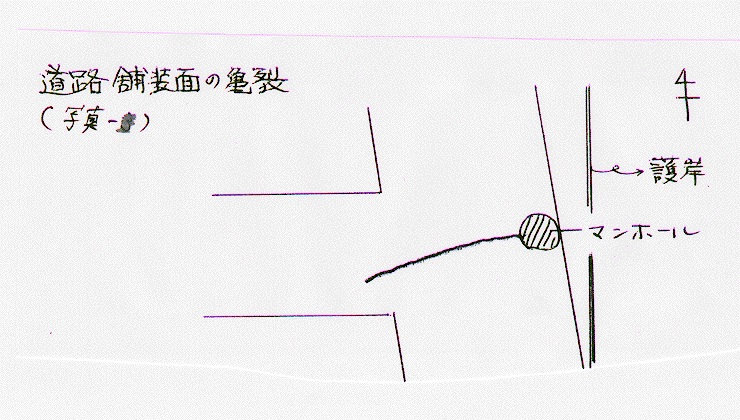 道路舗装面の亀裂
(写真-)
護岸
マンホール